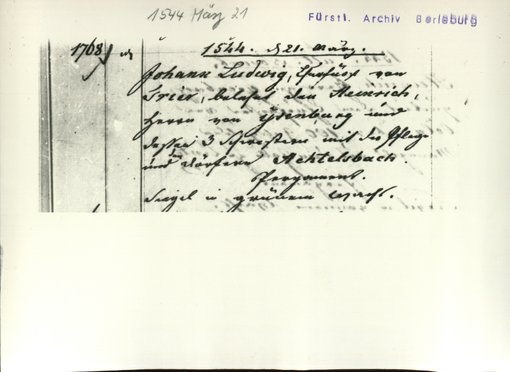 1544 März 21
Fürstl. Archiv Berleburg
1768
1544. d. 21. März.
Johann Ludwig, Churfürst von
Trier, belehnt den Heinrich,
Herrn von Ysenburg und
dessen 3 Schwestern mit der Pflege
und den Dörfern Achtelsbach
Pergament.
Siegel in grünem Wachs.